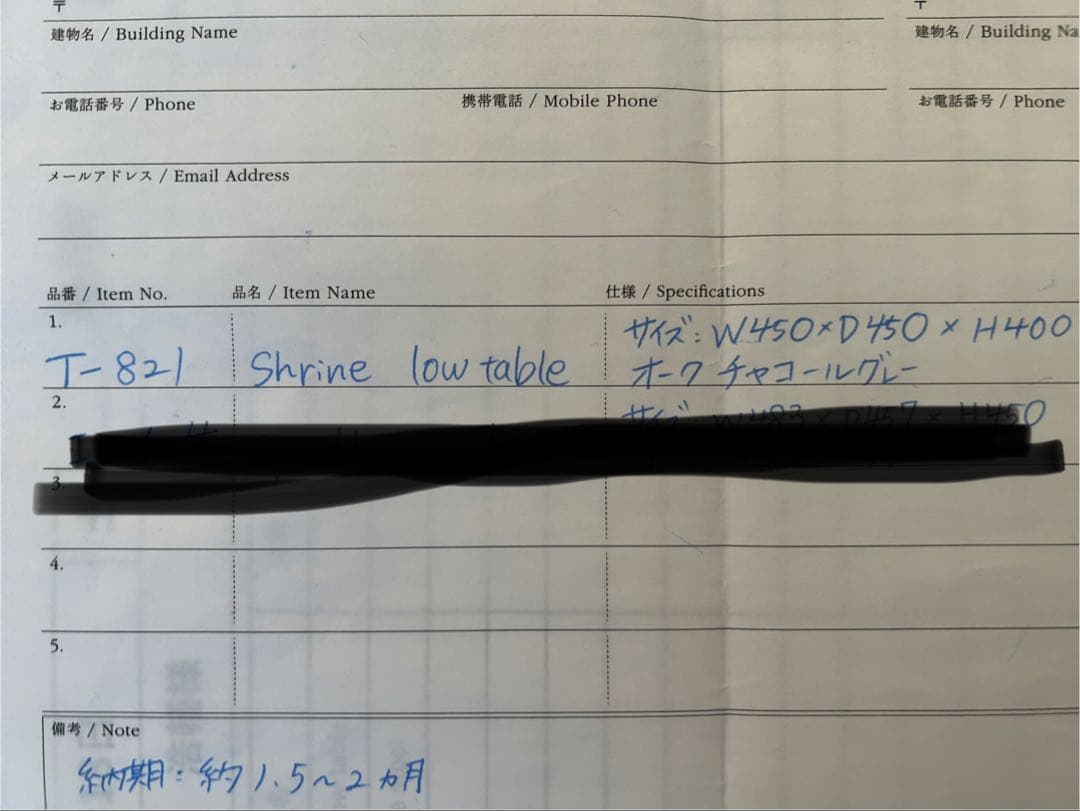 〒
〒
建物名 / Building Name
建物名 / Building Na
お電話番号 / Phone
携帯電話 / Mobile Phone
お電話番号 / Phone
メールアドレス / Email Address
品番 / Item No.
品名 / Item Name
仕様 / Specifications
1.
T-821
Shrine low table
サイズ:W450×D450×H400
オーク チャコールグレー
2.
サイズ:W483×D457×H450
3
4.
5.
備考 / Note
納期:約1.5~2ヵ月